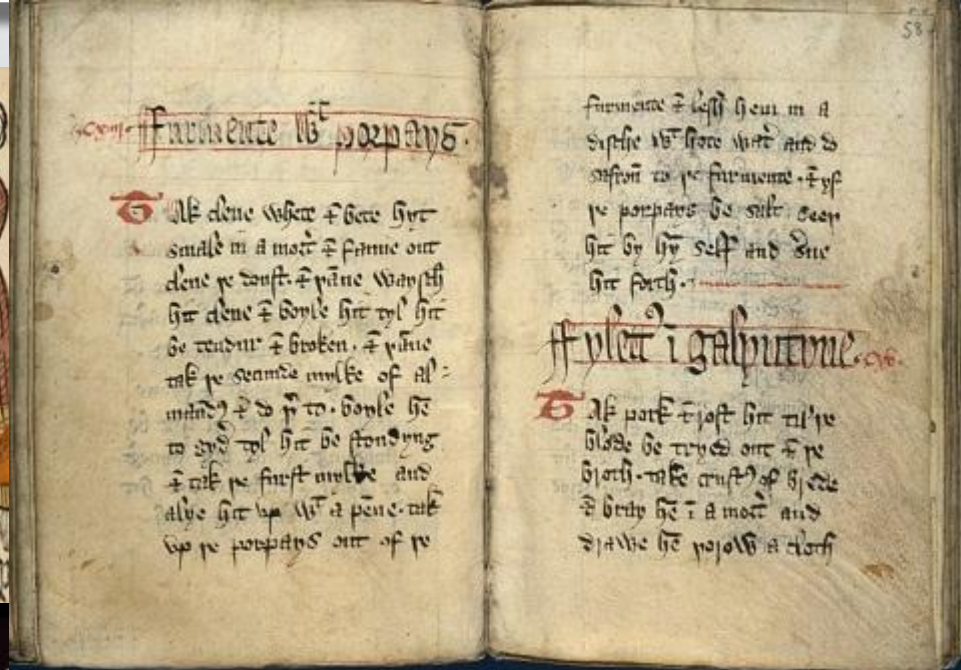 ·cxvij· Furmente wt porpays.
Tak clene whete & bete hyt
smale in a mort̉ & fanne out
clene þe doust. & þãne waysch
hit clene & boyle hit tyl hit
be tendur & broken. & þãne
tak þe secunde mylke of al-
maundꝯ & do þ̉ to. boyle hẽ
to gyd̉ tyl hit be stondyng
& tak þe furst mylke and
alye hit vp wt a pẽne. tak
vp þe porpays out of þe
58
furmente & lesh hem in a
dische wt hote wat̉ and do
safron̄ to þe furmente. & yf
þe porpays be salt. seeþ
hit by hỹ self and s̉ue
hit forth.
Fylett̉ ĩ galyntyne. cxv.
Tak pork & rost hit til þe
blode be tryed out & þe
broth. take crustꝯ of brede
& bray hẽ ĩ a mort̉ and
drawe hẽ þorow a cloth